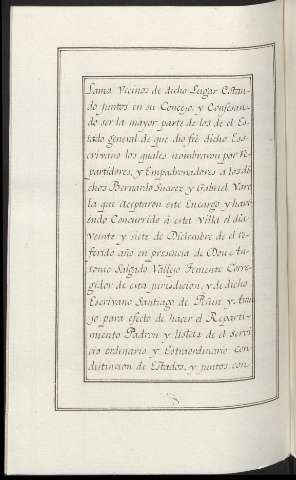 Lama Vecinos de dicho Lugar Estan-
do juntos en su Concejo, y Confesan-
do ser la mayor parte de los de el Es-
tado general de que dio fè dicho Ess-
crivano los quales nombraron por Re-
partidores, y Empadronadores a los di-
chos Bernardo Suarez y Gabriel Vare
la que aceptaron este Encargo y havi-
endo Concurrido à esta Villa el dia
Veinte y siete de Diciembre de el re-
ferido año en presencia de Don An-
tonio Salgado Vallejo Teniente Corre-
gidor de esta jurisdicion, y de dicho
Escrivano Santiago de y
jo para efecto de hacer el Reparti-
miento Padron y listas de el servi
cio ordinario y Estraordinario con
distincion de Estados, y juntos con